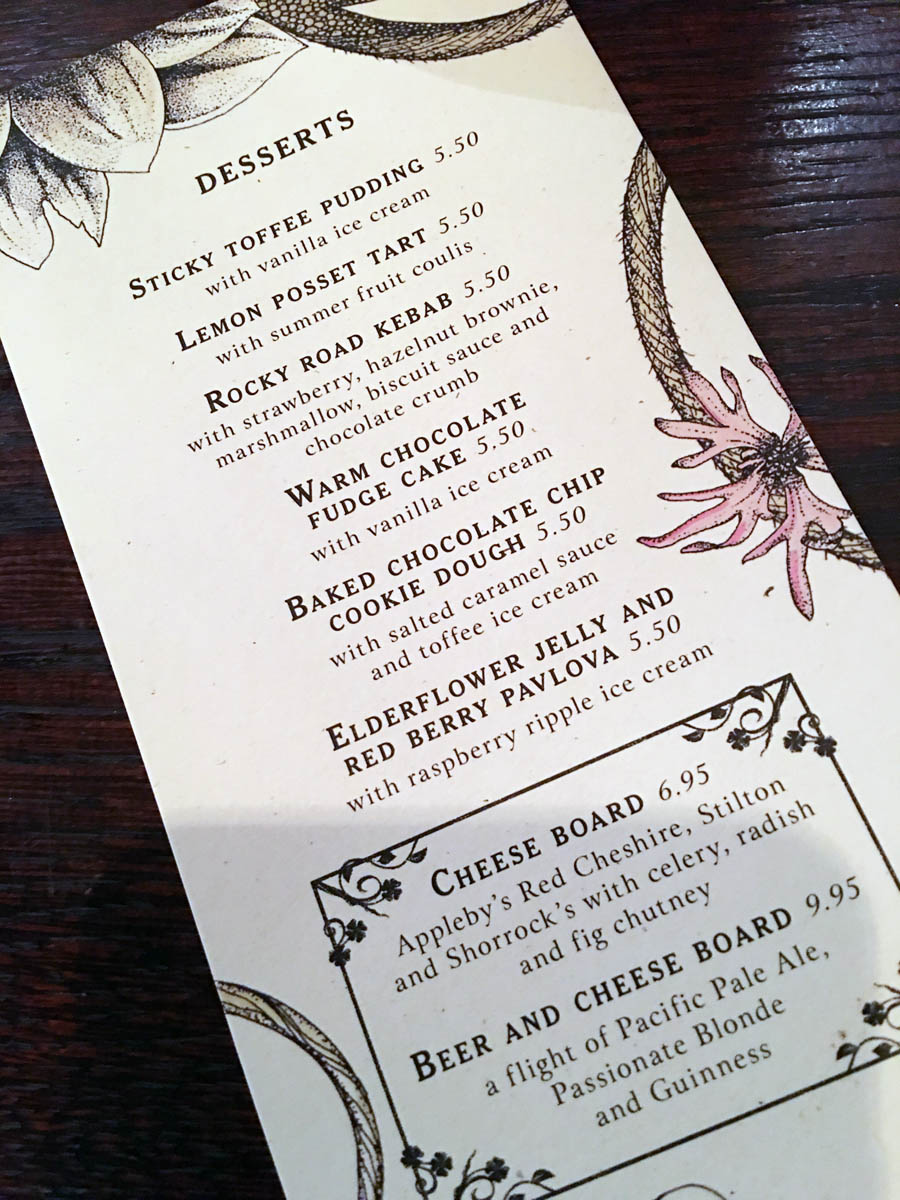 DESSERTS
STICKY TOFFEE PUDDING 5.50
with vanilla ice cream
LEMON POSSET TART 5.50
with summer fruit coulis
ROCKY ROAD KEBAB 5.50
with strawberry, hazelnut brownie,
marshmallow, biscuit sauce and
chocolate crumb
WARM CHOCOLATE
FUDGE CAKE 5.50
with vanilla ice cream
BAKED CHOCOLATE CHIP
COOKIE DOUGH 5.50
with salted caramel sauce
and toffee ice cream
ELDERFLOWER JELLY AND
RED BERRY PAVLOVA 5.50
with raspberry ripple ice cream
CHEESE BOARD 6.95
Appleby's Red Cheshire, Stilton
and Shorrock's with celery, radish
and fig chutney
BEER AND CHEESE BOARD 9.95
a flight of Pacific Pale Ale,
Passionate Blonde
and Guinness